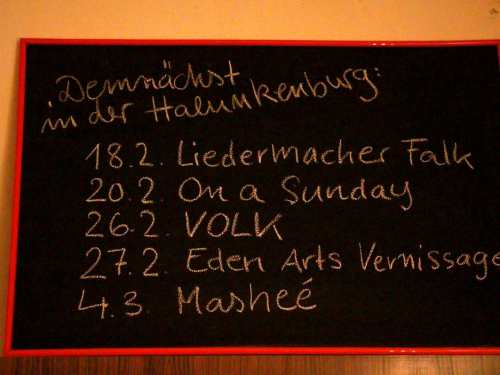 Demnächst
in der Halunkenburg:
18.2. Liedermacher Falk
20.2. On a Sunday
26.2. VOLK
27.2. Eden Arts Vernissage
4.3. Masheé